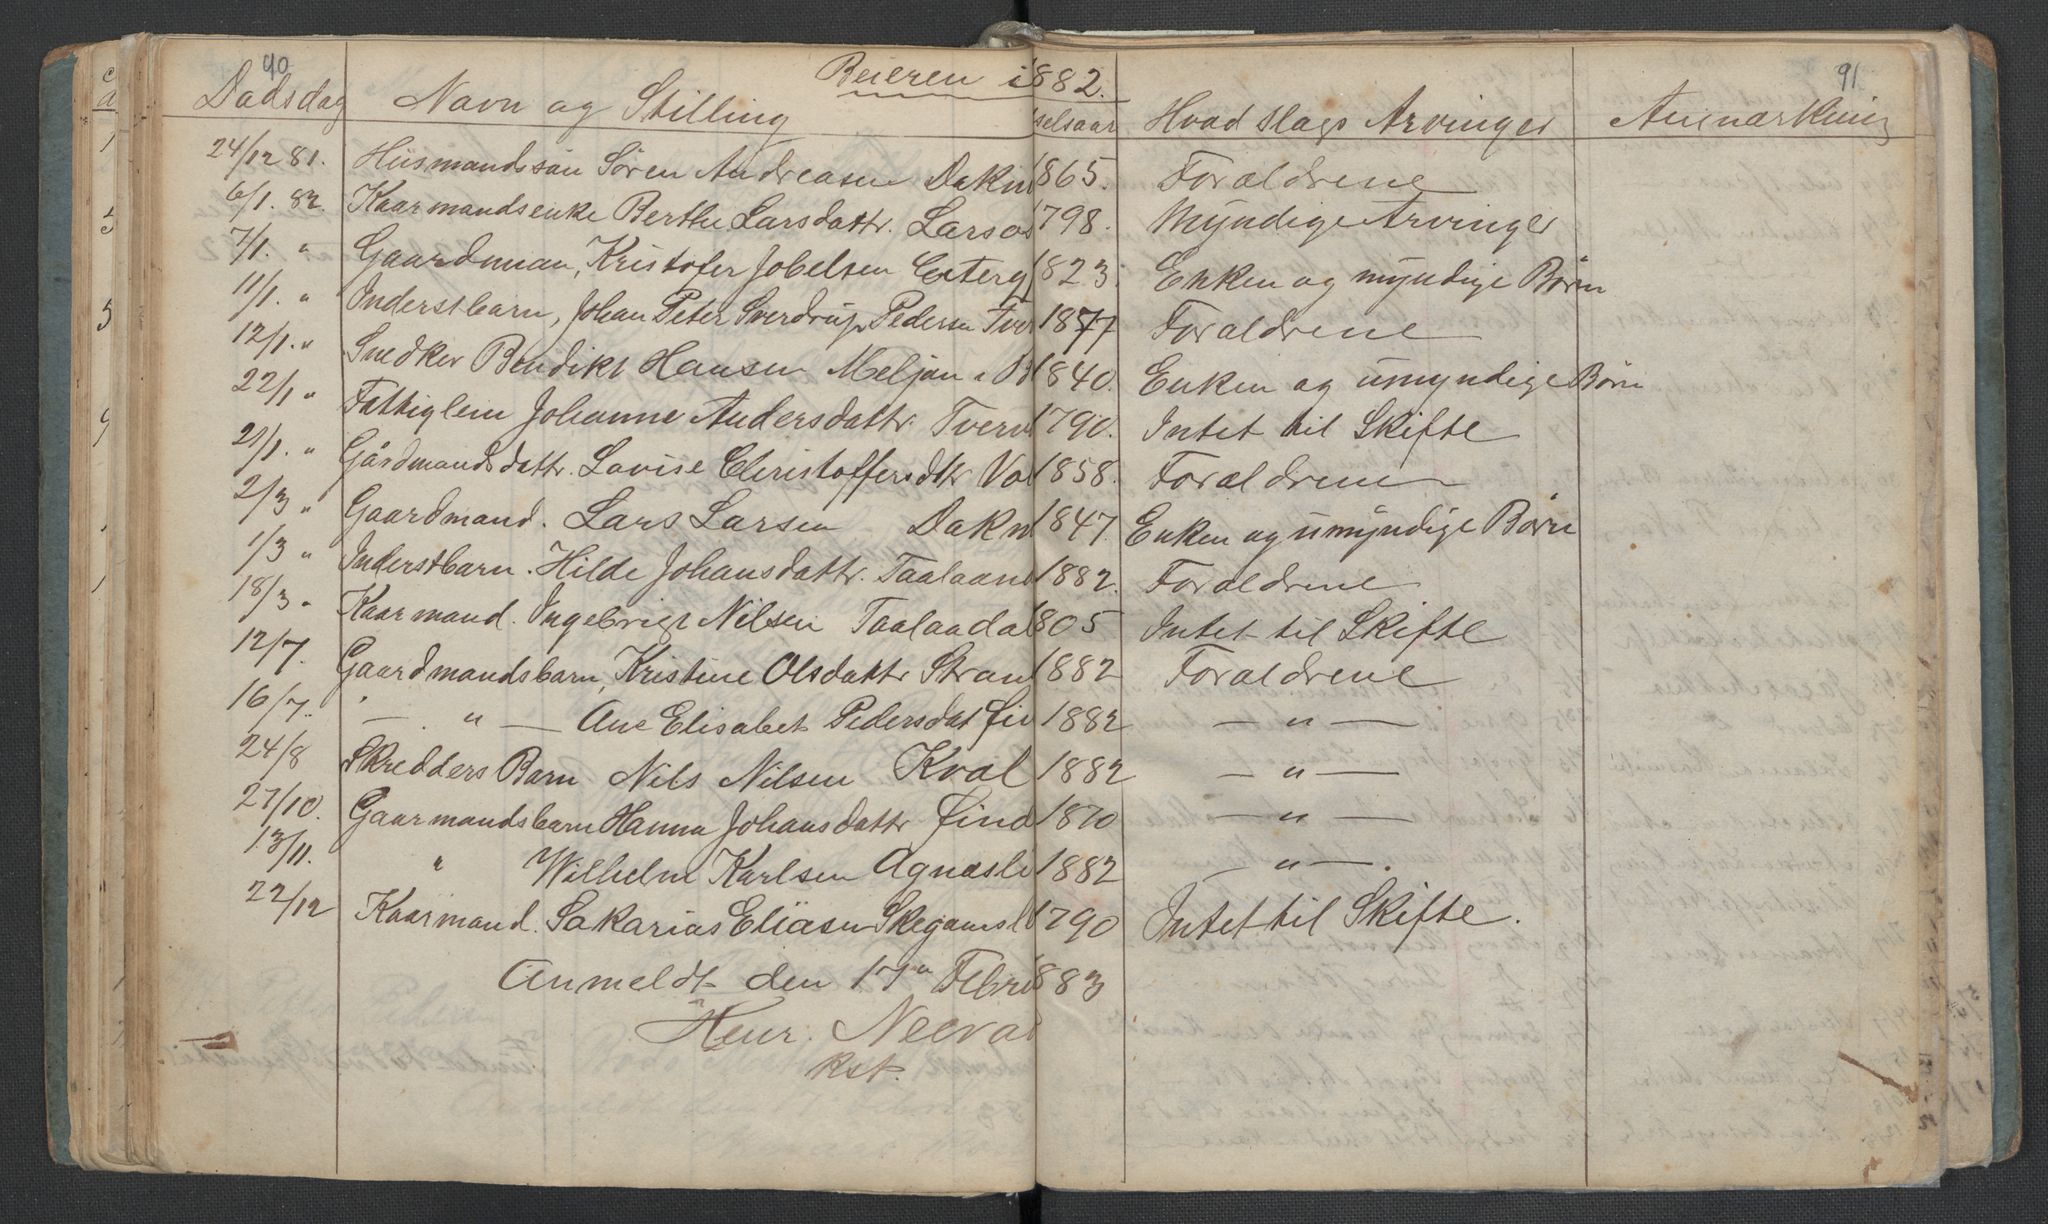 90
91
Beieren i 1882.
Dødsdag Navn og Stilling selsaar Hvad slags Arvinger Anmærkning
24/12 81. Husmandssøn Søren Andreasen Dokm 1865. Forældrene
6/1. 82. Kaarmandsenke Berthe Larsdattr. Larsos 1798. Myndige Arvinger
7/1. " Gaardman, Kristofer Jobelsen 1823. Enken og myndige Børn
11/1. " Inderstbarn, Johan Peter Sverdrup Pedersen Tver 1877 Forældrene
12/1. " Snedker Bendikt Hansen Meljan 1840. Enken og umyndige Børn
22/1 " Fattiglem Johanne Andersdattr. Tverv 1790. Intet til Skifte
21/1. " Gårdmandsdattr. Lovise Christoffersdtr Vol 1858. Forældrene
2/3 " Gaardmand. Lars Larsen Dokm 1847. Enken og umyndige Børn
1/3 " Inderstbarn. Hilde Johansdattr. Taalaan 1882. Forældrene
18/3 " Kaarmand. Ingebrigt Nilsen Taalaadal 1805 Intet til Skifte
12/7. Gaardmandsbarn, Kristine Olsdattr Stran 1882 Forældrene
16/7. — " — Ane Elisabet Pedersdat 1882 — " —
24/8 Skredders Barn Nils Nilsen Kval 1882 — " —
27/10. Gaarmandsbarn Hanna Johansdattr 1870 — " —
13/11. " Wilhelm Karlsen Agnesli 1882 — " —
22/12 Kaarmand. Sakarias Eliasen 1790 Intet til Skifte.
Anmeldt den 17de Febru 1883
Henr. Neerva
kst.